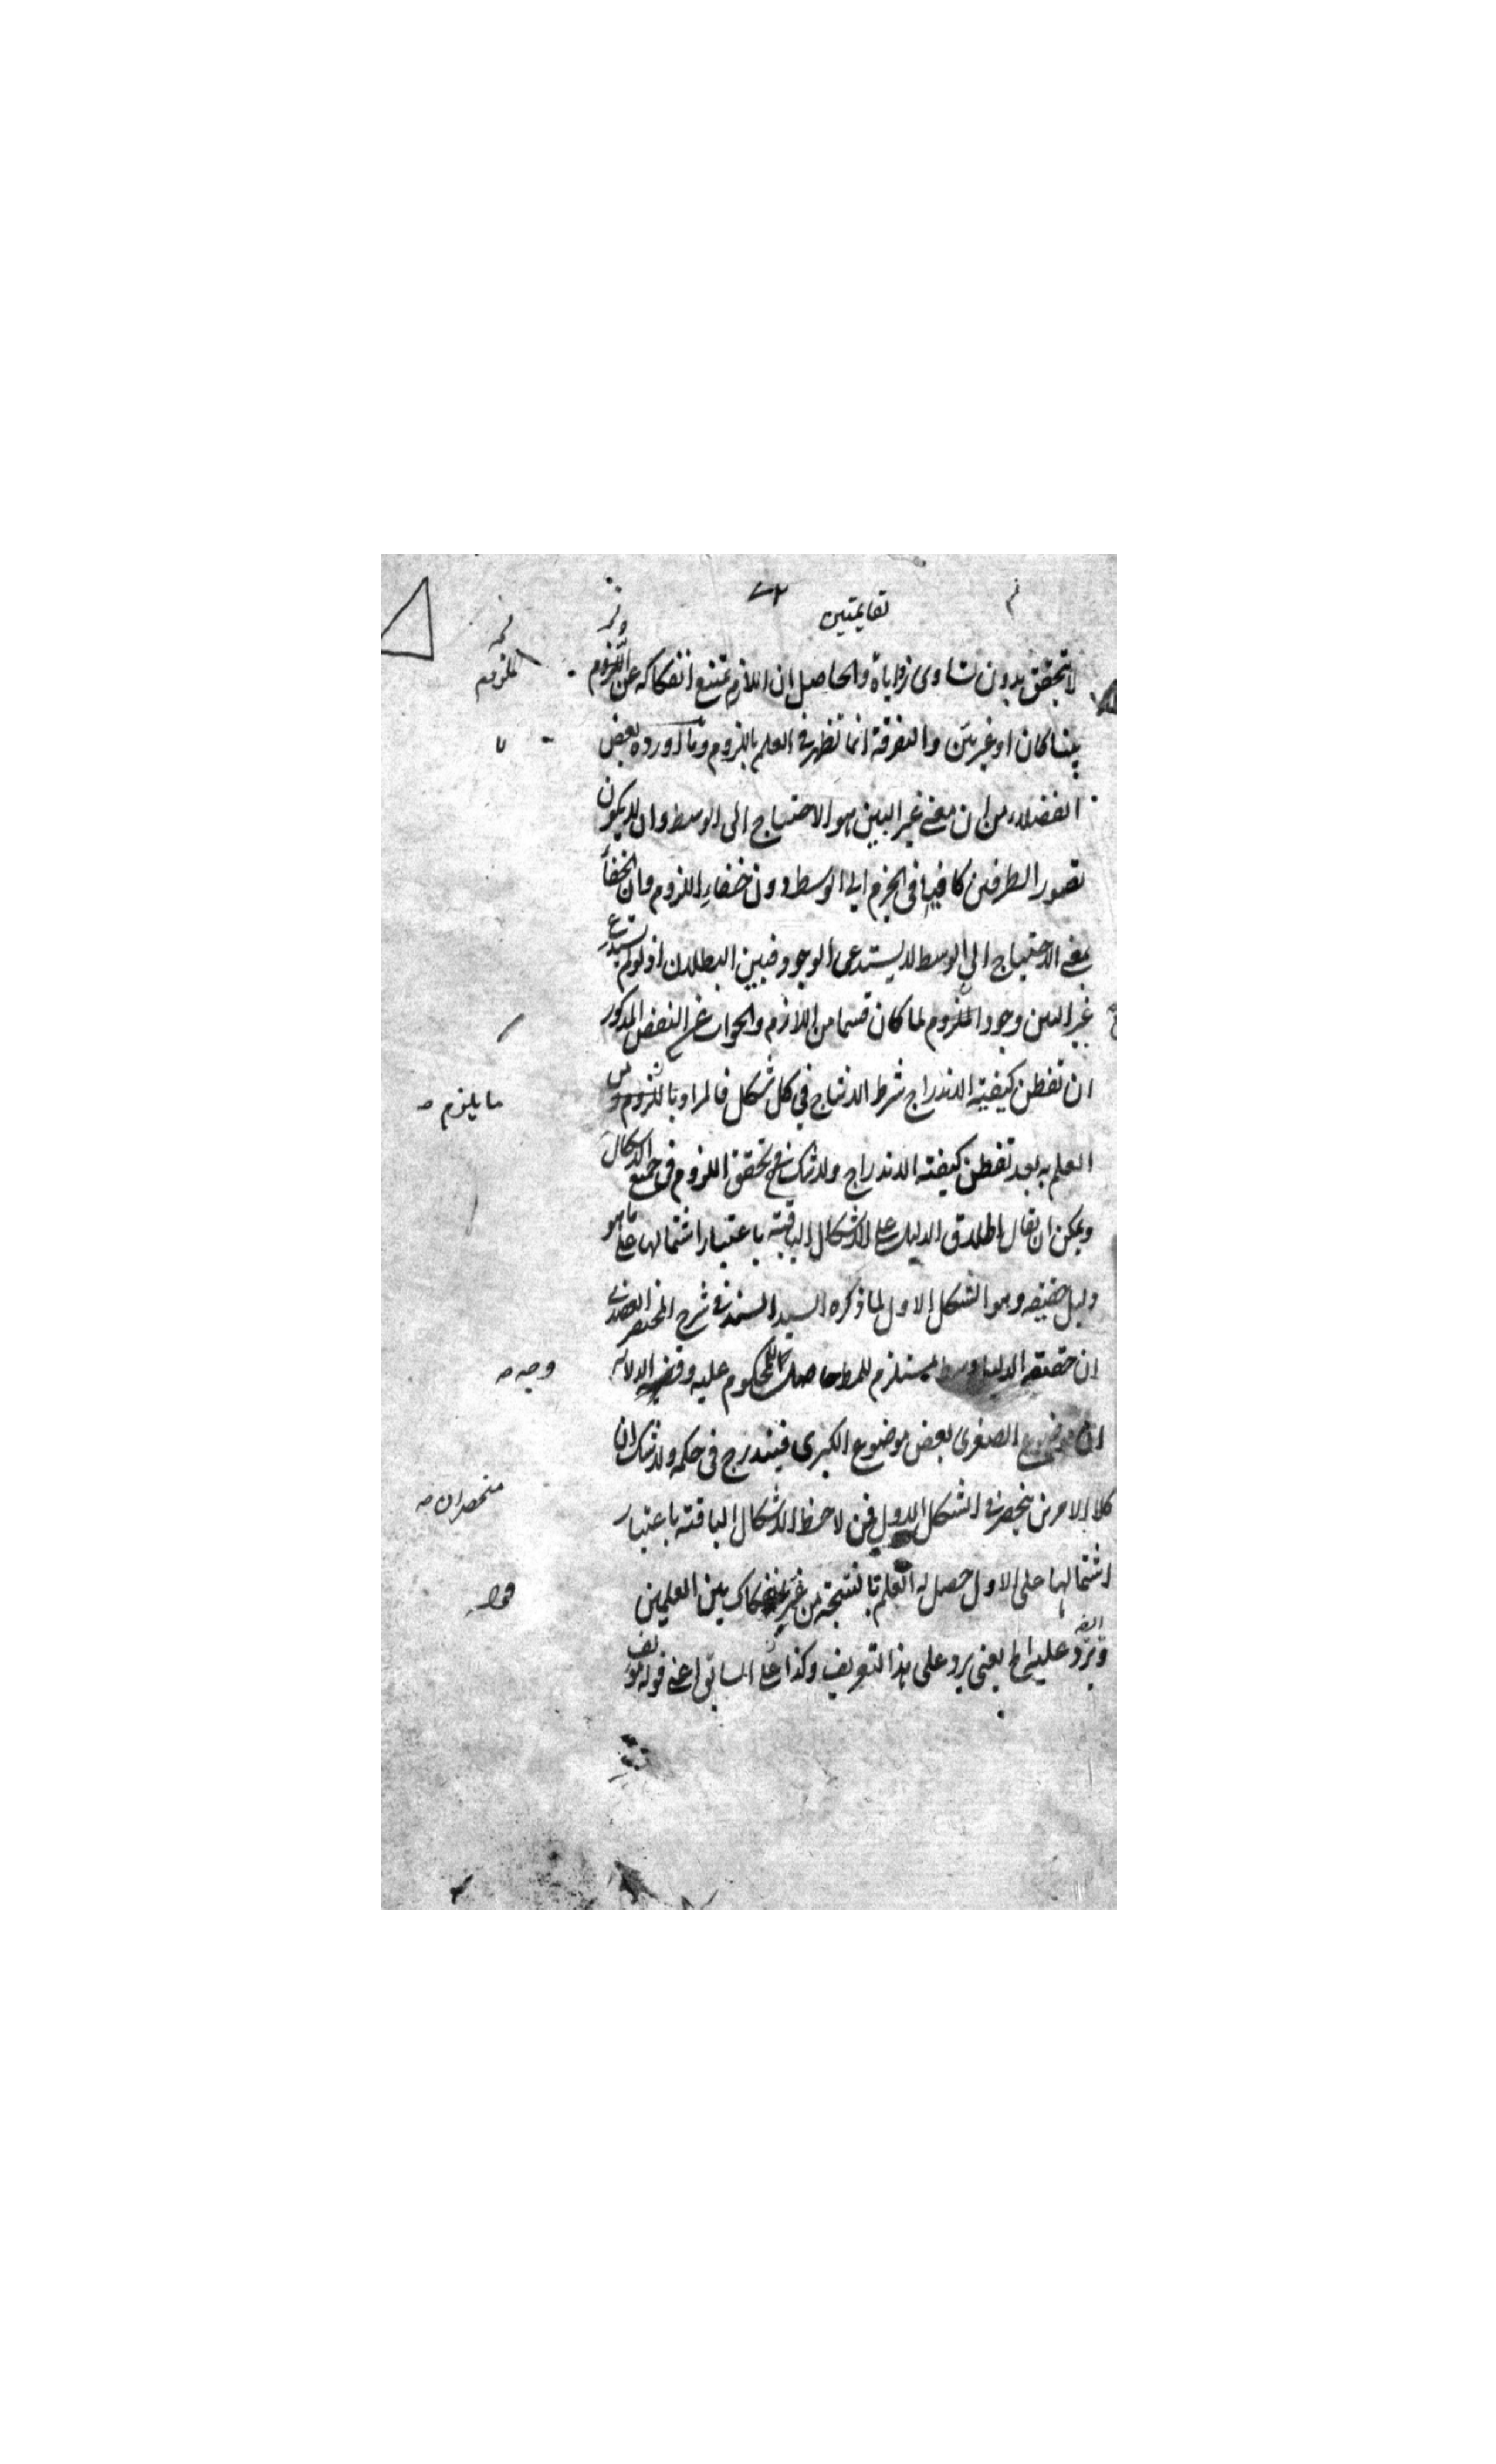 لقايمتين
لا يتحقق بدون تساوى زواياه والحاصل ان اللازم يمتنع انفكاكه عن اللزوم
الملزوم
بينا كان او غير بين والتفرقة انما تظهر في العلم باللزوم وما اورده بعض
الفضلاء من ان معنى غير البين هو الاحتياج الى الوسط وان لا يكون
تصور الطرفين كافيا في الجزم الى الوسط دون خفاء اللزوم وان الخفأ
بمعنى الاحتياج الى الوسط لا يستدعى الوجود فبين البطلان اذ لو لم يستدع
غير البين وجود الملزوم لما كان قسما من اللازم والجواب عن النقض المذكور
ان تفطن كيفية الاندراج شرط الانتاج في كل شكل فالمراد باللزوم
ما يلزم صح
العلم به بعد تفطن كيفية الاندراج ولا شك في تحقق اللزوم في جميع الاشكال
ويمكن ان يقال اطلاق الدليل على الاشكال الباقية باعتبار اشتمالها على ما هو
دليل حقيقة وهو الشكل الاول لما ذكره السيد السند في شرح المختصر العضدى
ان حقيقة الدليل وسط مستلزم للمط حاصل للمحكوم عليه و الدلالة
وجه صح
ان موضوع الصغرى بعض موضوع الكبرى فيندرج في حكمه ولا شك ان
كلا الامرين ينحصر في الشكل الاول فمن لاحظ الاشكال الباقية باعتبار
منحصران صح
اشتمالها على الاول حصل له العلم بالنتيجة من غير انفكاك بين العلمين
ويرد عليه ايضا يعنى يرد على هذا التعريف وكذا على السابق اعنى قوله مؤلف